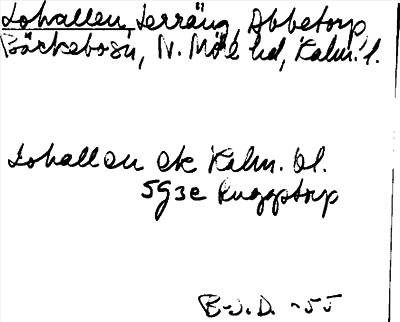 Lohallen, Terräng, Abbetorp,
Bäckebo sn, N. Möre hd, Kalm. l.
Lohallen ek Kalm. bl.
5G3e Ruggstorp
B-J.D. -55